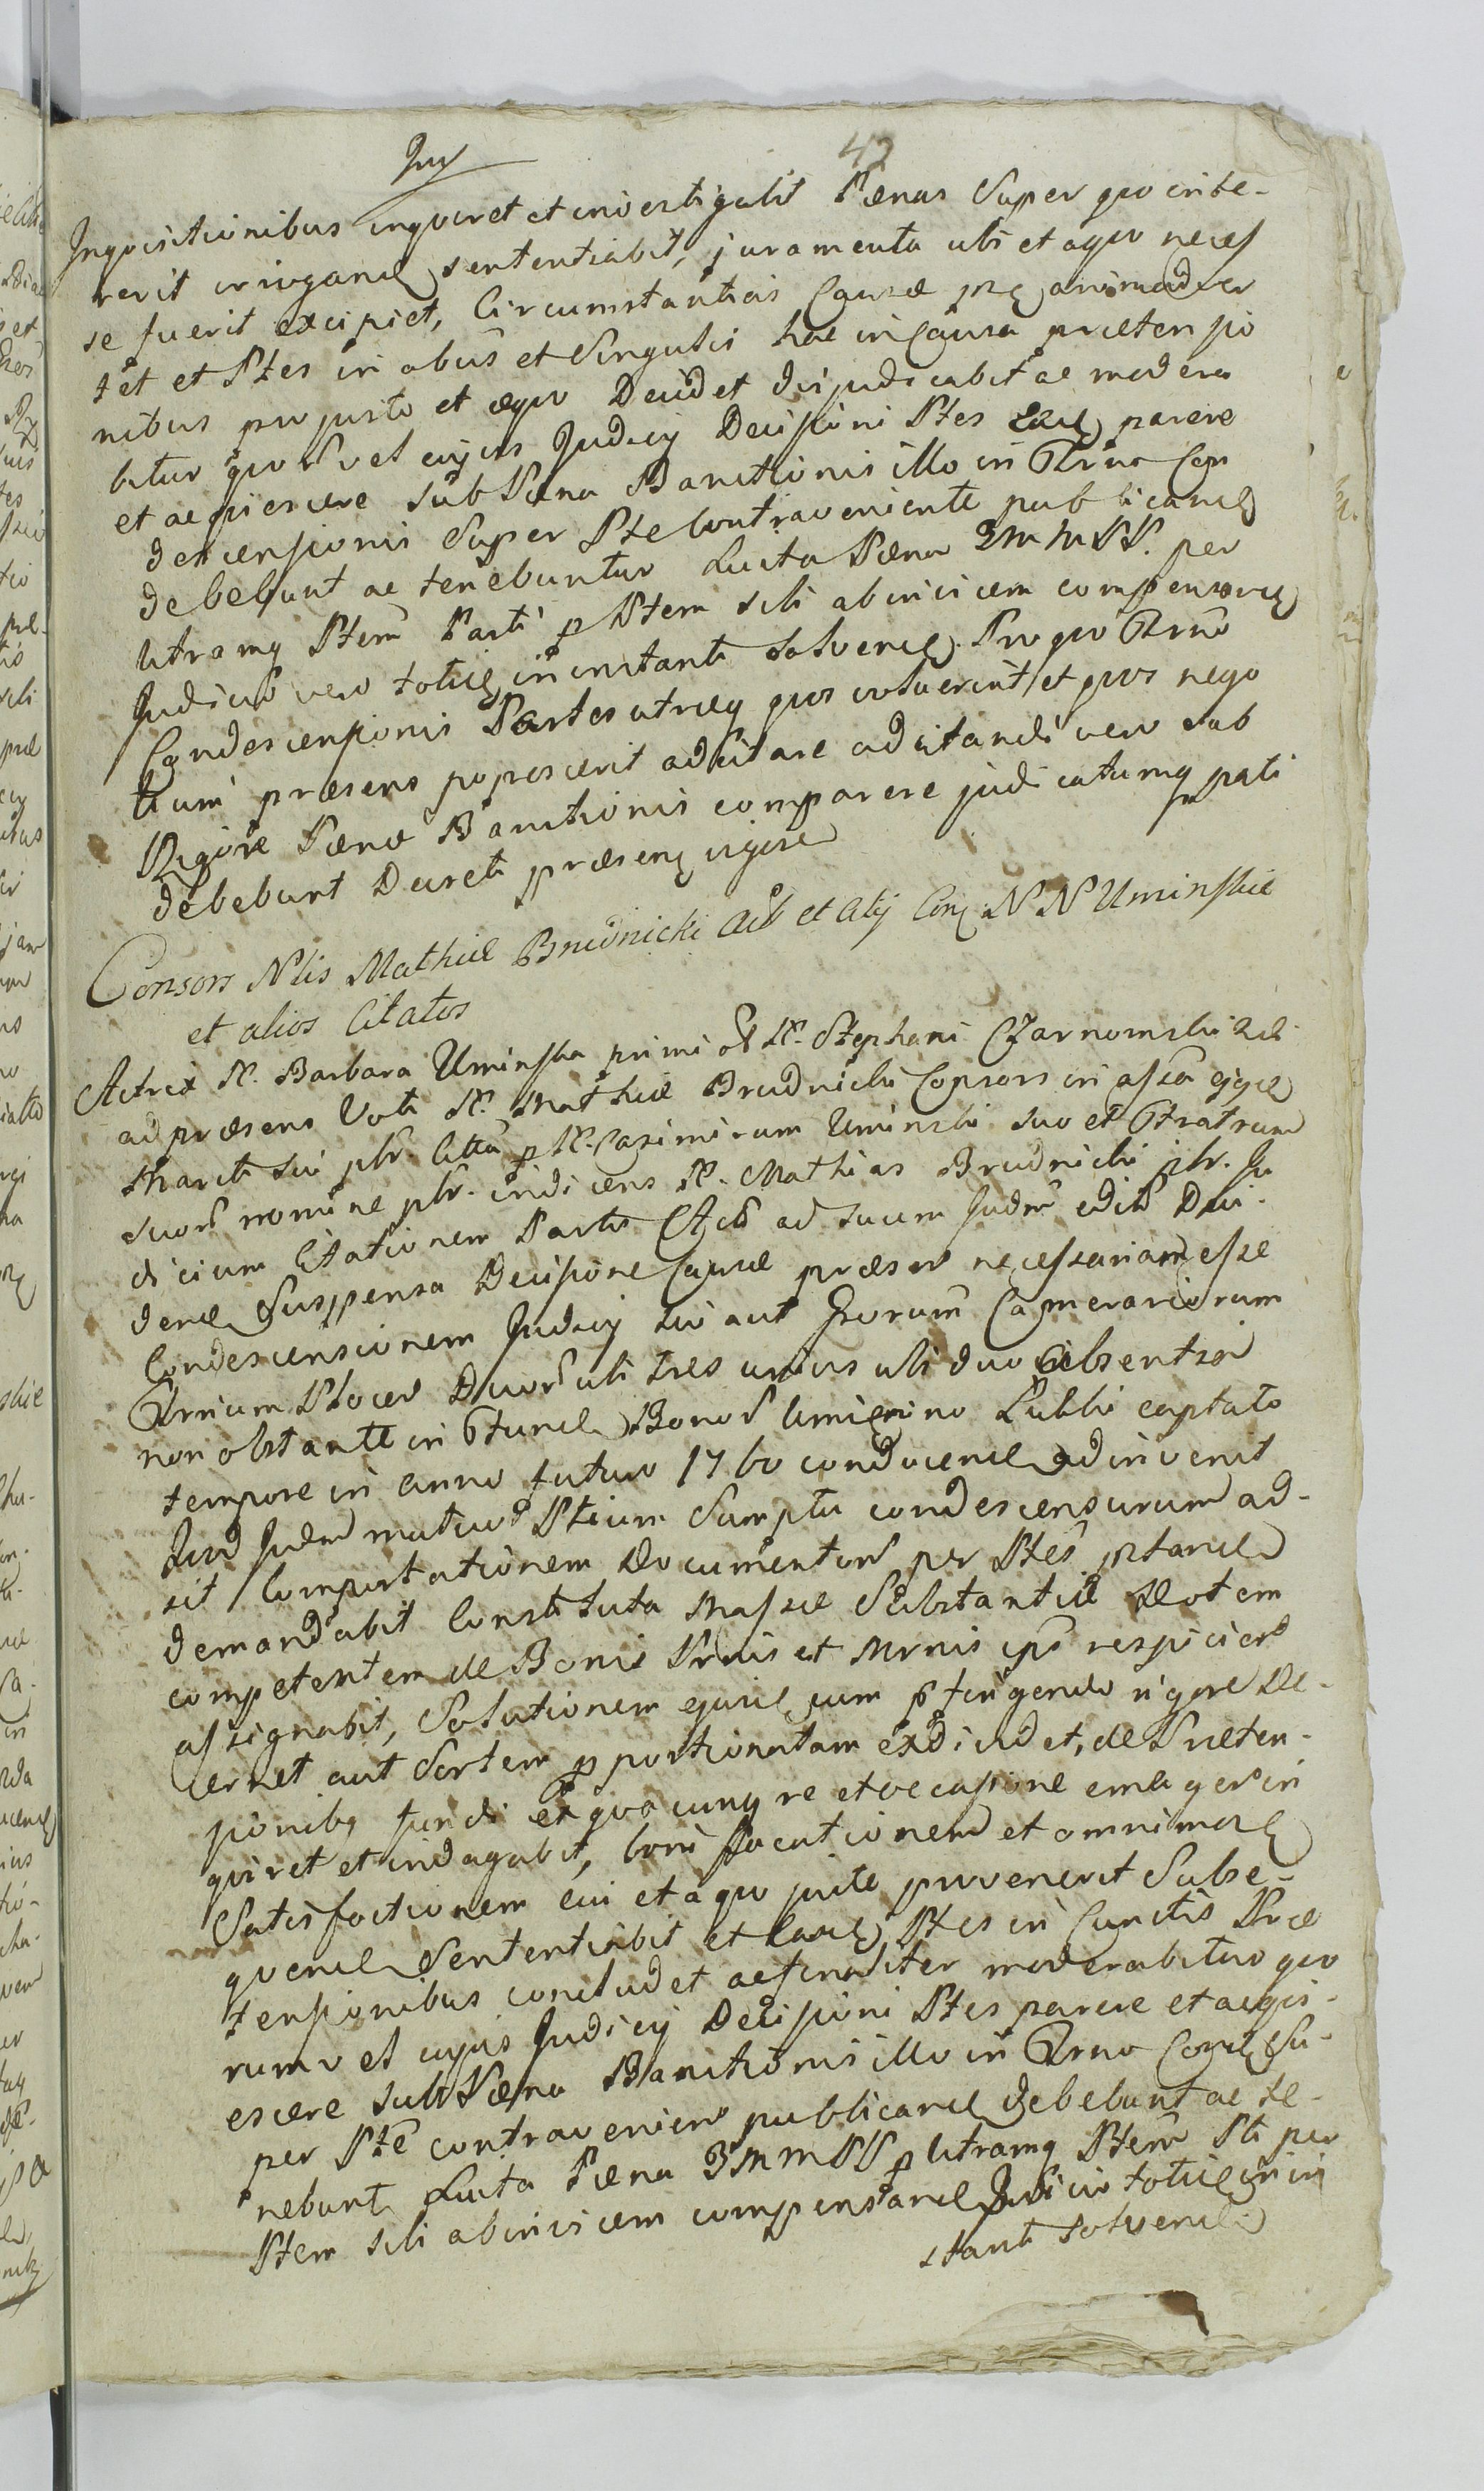 Inq
42
Inquisitionibus inquiret et investigabit Pænas super quo inve-
nerit irrogand sententiabit, juramenta ubi et a quo necess
se fuerit excipiet, Circumstantias Causæ animadver
tet et Ptes in obus et Singulis hac in Causa prætensio
nibus pro justo et æquo Decidet dijudicabit ac modera
bitur quorvel cujus Judicij Decisioni Ptes parere
et acquiescere sub Pæna Bannitionis illo in Trno Con
descensionis Super Pte Contraveniente publicand
debebunt ac tenebuntur Luita Pæna 3MMPP. per
utramq Ptem Parti p Ptem sibi abinvicem compensand
Judicio vero toties in instanti solvend. Pro quo Trno
Condescensionis Partes utræq quos voluerint et quos nego
tium præsens poposcerit adcitare adcitandi vero sub
Rigore Pænæ Bannitionis comparere judicatumq pati
debebunt Decreti præsens vigore
Consors Nlis Mathiæ Brudnicki Act et Alij Con N N Uminskie
et alios Citatos
Actrix N. Barbara Uminska primi N. Stephani Czarnomski
ad præsens Voti N. Mathiæ Brudnicki Consors in assa ejque
Mariti sui pbr. Citta p N. Casimirum Uminski suo et Fratrum
suor nomine pbr. indicens N. Mathias Brudnicki pbr. Ju
dicium Citationem Partis Act ad suum Judm Deci-
dend Suspensa Decisione Causæ præsen necessariam esse
Condescensionem Judicij sui aut Grorum Camerariorum
Trrium Plocen Duor ubi tres unius ubi duo absentia
non obstante in Fund Bonor Umienino Lubki captato
tempore in anno futuro 1760 conducend adinvenit
Judm mutuo Ptium Sumptu condescensurum ad-
sit Comportationem Documentor per Ptes pstand
demandabit Constituta Massæ Substantiæ Dotem
competentem de Bonis Prnis et Mrnis ipsi respicien
assignabit, Solutionem ejusd cum ptingendo rigore De-
cernet aut Sortem pportionatam exdividet, de Præten-
sionibq fundi et quacunq re et occasione emerger in
quiret et indagabit, bonificationem et omnimod
Satisfactionem cui et a quo juste provenerit Subse-
quend Sententiabit et Ptes in Cunctis Præ
tensionibus concludet ac finaliter moderabitur quo
rumvel cujus Judicij Decisioni Ptes parere et acqui-
escere sub Pæna Bannitionis illo in Trno Cond Su-
per Pte contravenien publicand debebunt ac te-
nebunt Luita Pæna 3MMPP p Utramq Ptem Pti per
Ptem sibi abinvicem compensand Judicio toties in in
stanti solvend